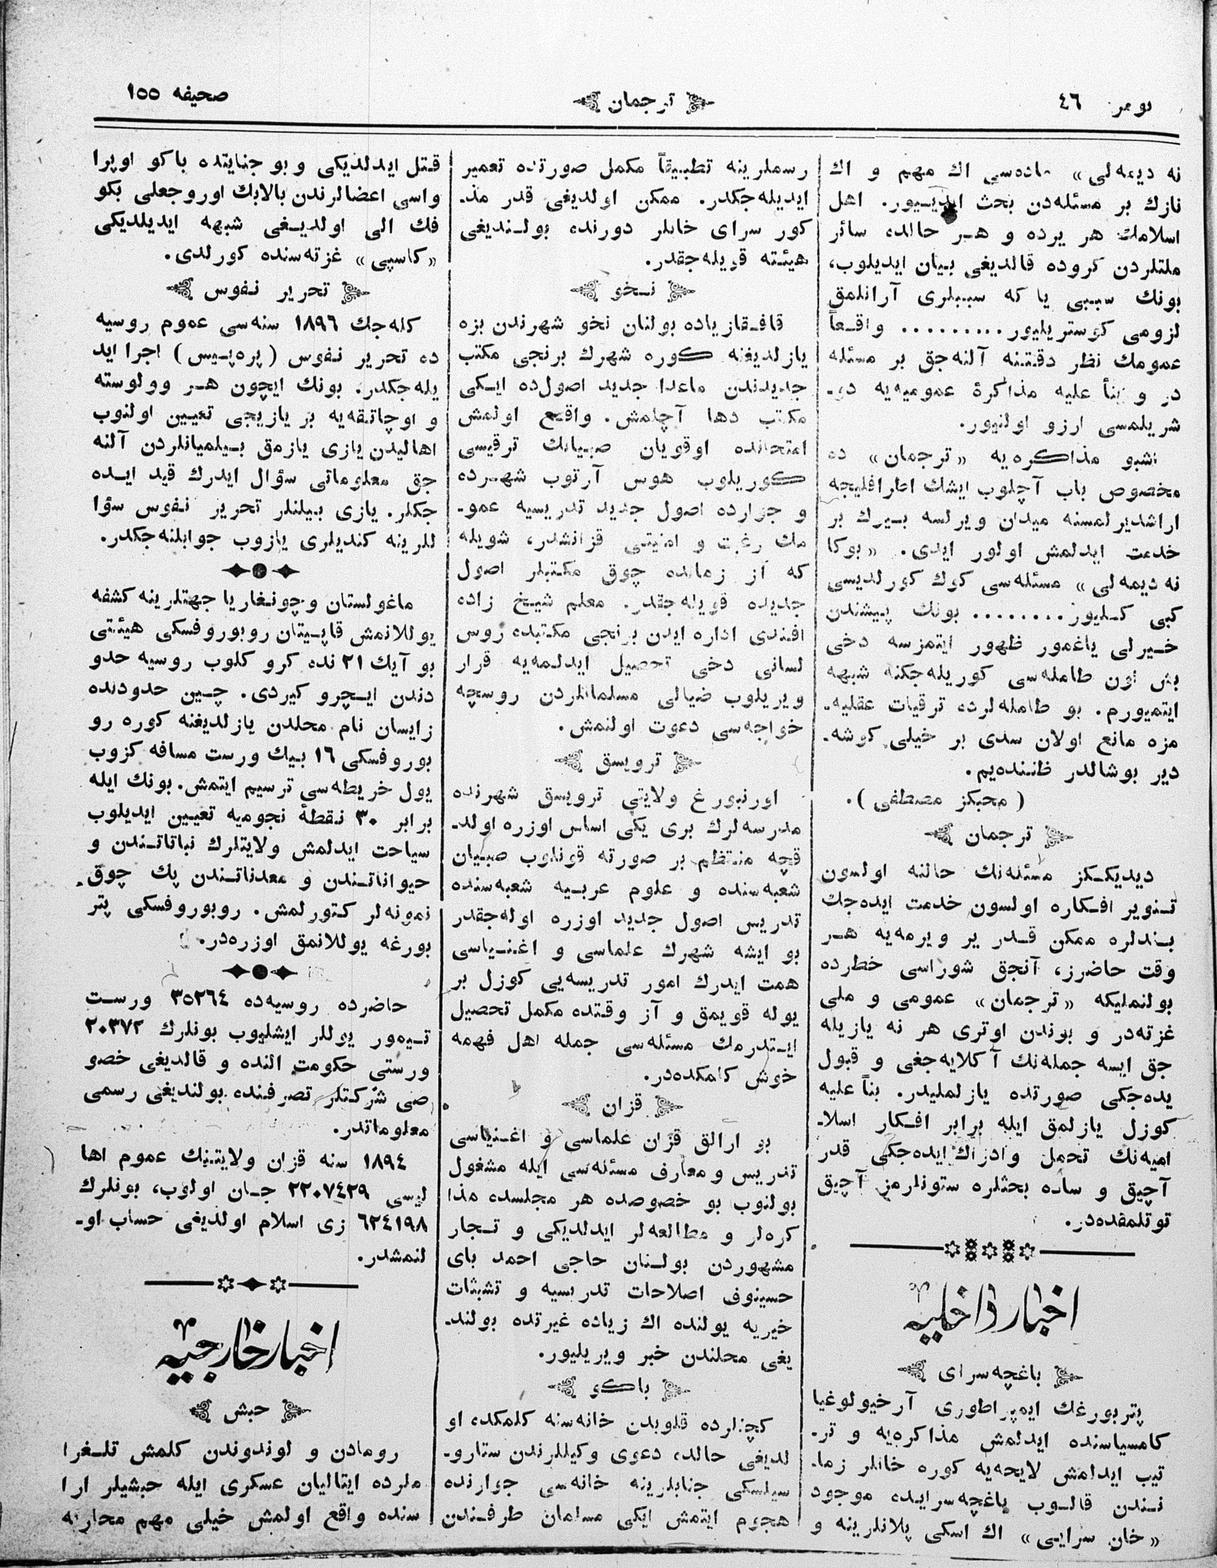 نومر ٤٦
ترجمان
صحیفه ١٥٥
نه دیمه‌لی» ماده‌سی اك مهم و اك
نازك بر مسئله‌دن بحث ایدیـیور. اهل
اسلامك هر یرده و هـر حالده سائر
ملتلردن كروده قالدیغی بیان ایدیلوب،
بونك سببی یا كه سببلری آرانلمق
لزومی كوستریلیور......... واقـعاً
عمومك نظر دقتنه آلنه‌جق بر مسئله
در و بنأ علیه مذاكرۀ عمومیه‌یه دیـ
شریلمسی ارزو اولنیور.
اشبو مذاكره‌یه «ترجمان» ده
مخصوص باب آچلوب ایشك اطرافلیجه
اراشدیرلمسنه میدان ویرلسه بـیرك بر
خدمت ایدلمش اولور ایدی. «بوكا
نه دیمه‌لی» مسئله‌سی كوك كورلدیسی
كبی كـلیور........ بونك پیشندن
خـیرلی یاغمور ظهور ایتمزسه دخی
بش اون طامله‌سی كوریله‌جكنه شبهه
ایتمیورم. بو طامله‌لرده ترقیات عقلیه‌ـ
مزه مانع اولان سدی بر خیلی كوشه‌ـ
دیر بوشالدر ظننده‌یم.
(محبكز مصطفی).
ترجمان
دیدیكـكز مسئله‌نك حالنه اولسون
تـنویر افـكاره اولسون خدمت ایده‌جك
بـندلره ممكن قـدر یر ویرمه‌یه هـر
وقت حاضرز، آنجق شوراسی خطرده
بولنملیكه «ترجمان» عمومی و ملی
غزته‌در و بوندن اوتری هر نه یازیله
جق ایسه جمله‌نك آكلایه‌جغی و قبول
یده‌جكی صورتده یازلملیدر. بنأ علیه
كوزل یازلمق ایله برابر افـكار اسلاـ
امیه‌نك تحمل وادراك ایده‌جكی قدر
آچیق و ساده بحثلره ستونلرمز آچیق
توتلمقده‌در.
اخبار داخلیه
باغچه‌سرای
پتربورغك ایمپراطوری آرخیولوغیا
كامسیاسنده ایدلمش مذاكره‌یه و ترـ
تیب ایدلمش لایحه‌یه كوره خانلر زماـ
نـندن قالـوب باغچه‌سرایده موجود
«خان سرایی» اك اسكی پلانلرینه و
رسملرینه تطبیقاً مكمل صورتده تعمیر
ایدیله‌جكدر. ممكن اولدیغی قدر مذـ
كور سرای خانلر دورنده بولـندیغی
هیئته قویله‌جقدر.
نـخو
قافـقازیاده بولنان نخو شهرندن بزه
یازلدیغنه كوره شهرك برنجی مكتب
جدیدندن ماعدا جدید اصولده ایـكی
مكتب دها آچلمش. واقـع اولمش
امتحانده اوقویان صبیانك ترقیسی
كوریلوب هوس آرتوب شهـرده
و جوارده اصول جدید تدریسیه عموـ
مك رغبت و امنیتی قزانشدر، شویله
كه از زمانده چوق مكتبلر اصول
جدیده قویله‌جقدر. معلم شیـخ زاده
افندی اداره ایدن برنجی مكتبده روس
لسانی دخی تحصیل ایدلـمه‌یه قرار
ویریلوب ضیالی مسلمانلردن روسچه
خواجه‌سی دعوت اولنمش.
ترویسق
اورنبورغ ولایتی ترویسق شهرنده
مدرسه‌لرك بری یكی اساس اوزره اولدـ
قچه منتظم بر صورته قونلوب صبـیان
شعبه‌سنده و علوم عربـیه شعبه‌سنده
تدریس اصول جدید اوزره اوله‌جقدر
بو ایشه شهرك علماسی و اغنـیاسی
همت ایدرك امور تدریسه‌یی كوزل بر
یوله قویمق و آز وقتده مكمل تحصیل
ایـتدرمك مسئله‌سی جمله اهل فهمه
خوش كلمكده‌در.
قزان
بو ارالق قزان علماسی و اغـنیاسی
تدریس و معارف مسئله‌سی ایله مشغول
بولنوب بو خصوصده هر مجلسده مذا
كره‌لر و مطالعه‌لر ایدلدیكی و تـجار
مشهوردن بولـنان حاجی احمد بای
حسینوف اصلاحات تدریسیه و تشبثات
خیریه یولنده اك زیاده غیرتده بولندـ
یغی محلندن خبر ویریلیور.
باكو
كچنلرده قلوبدن خانه‌سنه كلمكده او
لدیغی حالده دعوی وكیللرندن ستاروـ
سیلسكی جنابلرینه خانه‌سی جوارنده
هجوم ایتمش ایكی مسلمان طرفـندن
قـتل ایدلدیكی و بو جنایتده باكو اوپرا
واسی اعضالرندن بالابك اوروجعلی بكو
فك الی اولدیـغی شبهه ایدیلدیكی
«كاسپی» غزته‌سنده كورلدی.
تحریر نـفوس
كله‌جك ١٨٩٦ سنه‌سی عموم روسیه
ده تحریر نـفوس (پره‌پیس) اجرا اید
یله‌جكدر. بونك ایچون هـر وولوسته
و اوچاتقه‌یه بر یازیجی تعیـین اولنوب
اهالیدن یازی یازمق بـیلمیانلردن آلنه
جق معلوماتی سؤال ایدرك قید ایـده
جكلر. یازی بیلنلر تحریر نـفوس سؤا
للرینه كندیلری یازوب جوابلنه‌جكدر.
ماغولستان و چونـغاریا جهتلرینه كشفه
یوللانمش قاپـیتان روبوروفسكی هیئتی
بو آیك ٢١ نده كرو كلوب روسیه حدو
دندن ایـچرو كیردی. چـین حدودنده
زایسان نام محلدن یازلدیغنه كوره رو
بوروفسكی ١٦ بـیك ورست مسافه كزوب
یول خریطه‌سی ترسیم ایتمش. بونك ایله
برابر ٣٠ نـقطۀ نجومیه تعیـین ایدیلوب
سیاحت ایدلمش ولایتلرك نباتاتـندن و
حیواناتـندن و معدناتـندن پك چوق
نمونه‌لر كـتورلمش. روبوروفسكی پتر
بورغه یوللانمق اوزره‌در.
حاضرده روسیه‌ده ٣٥٢٦٤ ورسـت
تـیمور یوللر ایشلیوب بونلرك ٢٠٣٧٢
ورستی حكومت النده و قالدیغی خصو
صی شركتلر تصرفنده بولندیغی رسمی
معلوماتدر.
١٨٩٤ سنه قزان ولایتـنك عموم اها
لیسی ٢٢٠٧٤٢٩ جـان اولوب، بونلرك
٦٢٤١٩٨ زی اسلام اولدیغی حساب اوـ
لنمشدر.
اخبار خارجیه
حبش
رومادن و لوندوندن كلمش تلـغرا
ملرده ایتالیان عسكری ایله حبشیلر ارا
سنده واقع اولمش خیلی مهم محاربه